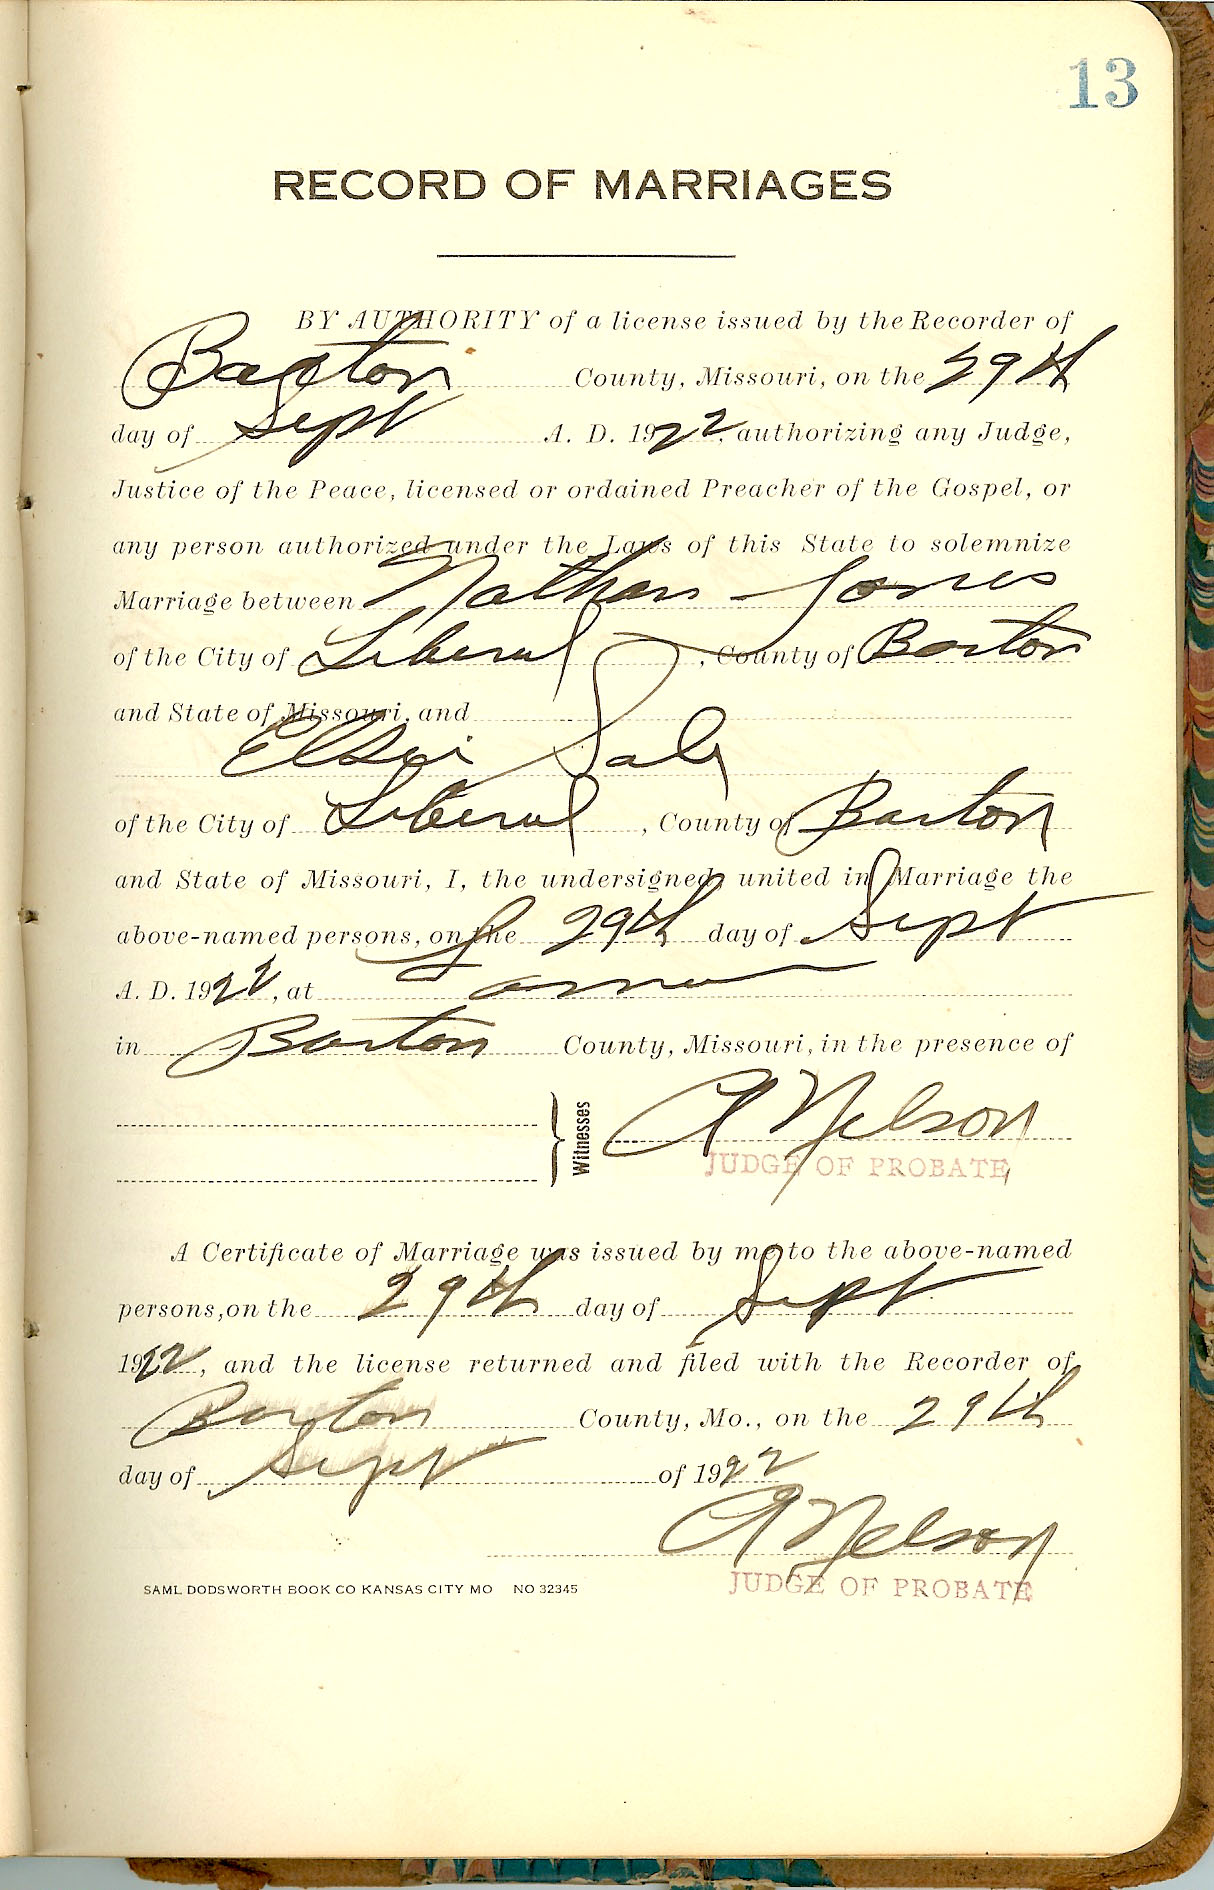 13
RECORD OF MARRIAGES
BY AUTHORITY of a license issued by the Recorder of
Barton County, Missouri, on the 29th
day of Sept A. D. 1922, authorizing any Judge,
Justice of the Peace, licensed or ordained Preacher of the Gospel, or
any person authorized under the Laws of this State to solemnize
Marriage between Nathan Jones
of the City of Liberal, County of Barton
and State of Missouri, and
of the City of Liberal, County of Barton
and State of Missouri, I, the undersigned, united in Marriage the
above-named persons, on the 29th day of Sept
A. D. 1922, at Lamar
in Barton County, Missouri, in the presence of
Witnesses A Nelson
JUDGE OF PROBATE
A Certificate of Marriage was issued by me to the above-named
persons, on the 29th day of Sept
1922, and the license returned and filed with the Recorder of
Barton County, Mo., on the 29th
day of Sept of 1922
A Nelson
SAML DODSWORTH BOOK CO KANSAS CITY MO NO 32345 JUDGE OF PROBATE